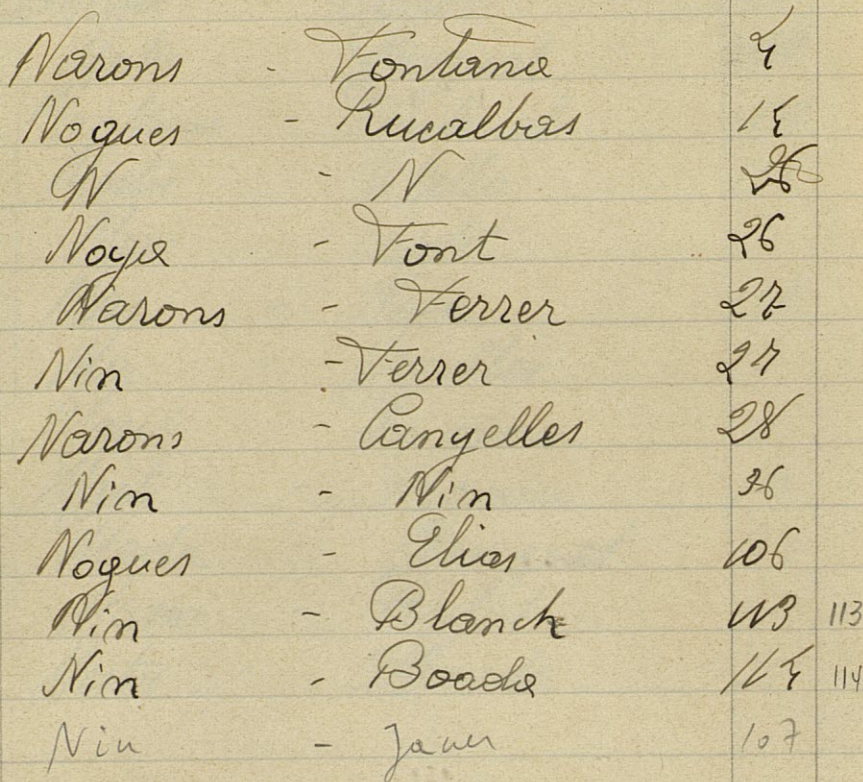 Narons - Fontana 4
Nogues - Rucalbas 14
N - N 26
Noya - Font 26
Narons - Ferrer 27
Nin - Ferrer 27
Narons - Canyelles 28
Nin - Nin 36
Nogues - Elias 106
Nin - Blanch 113 113
Nin - Boada 114 114
Nin - Janer 107